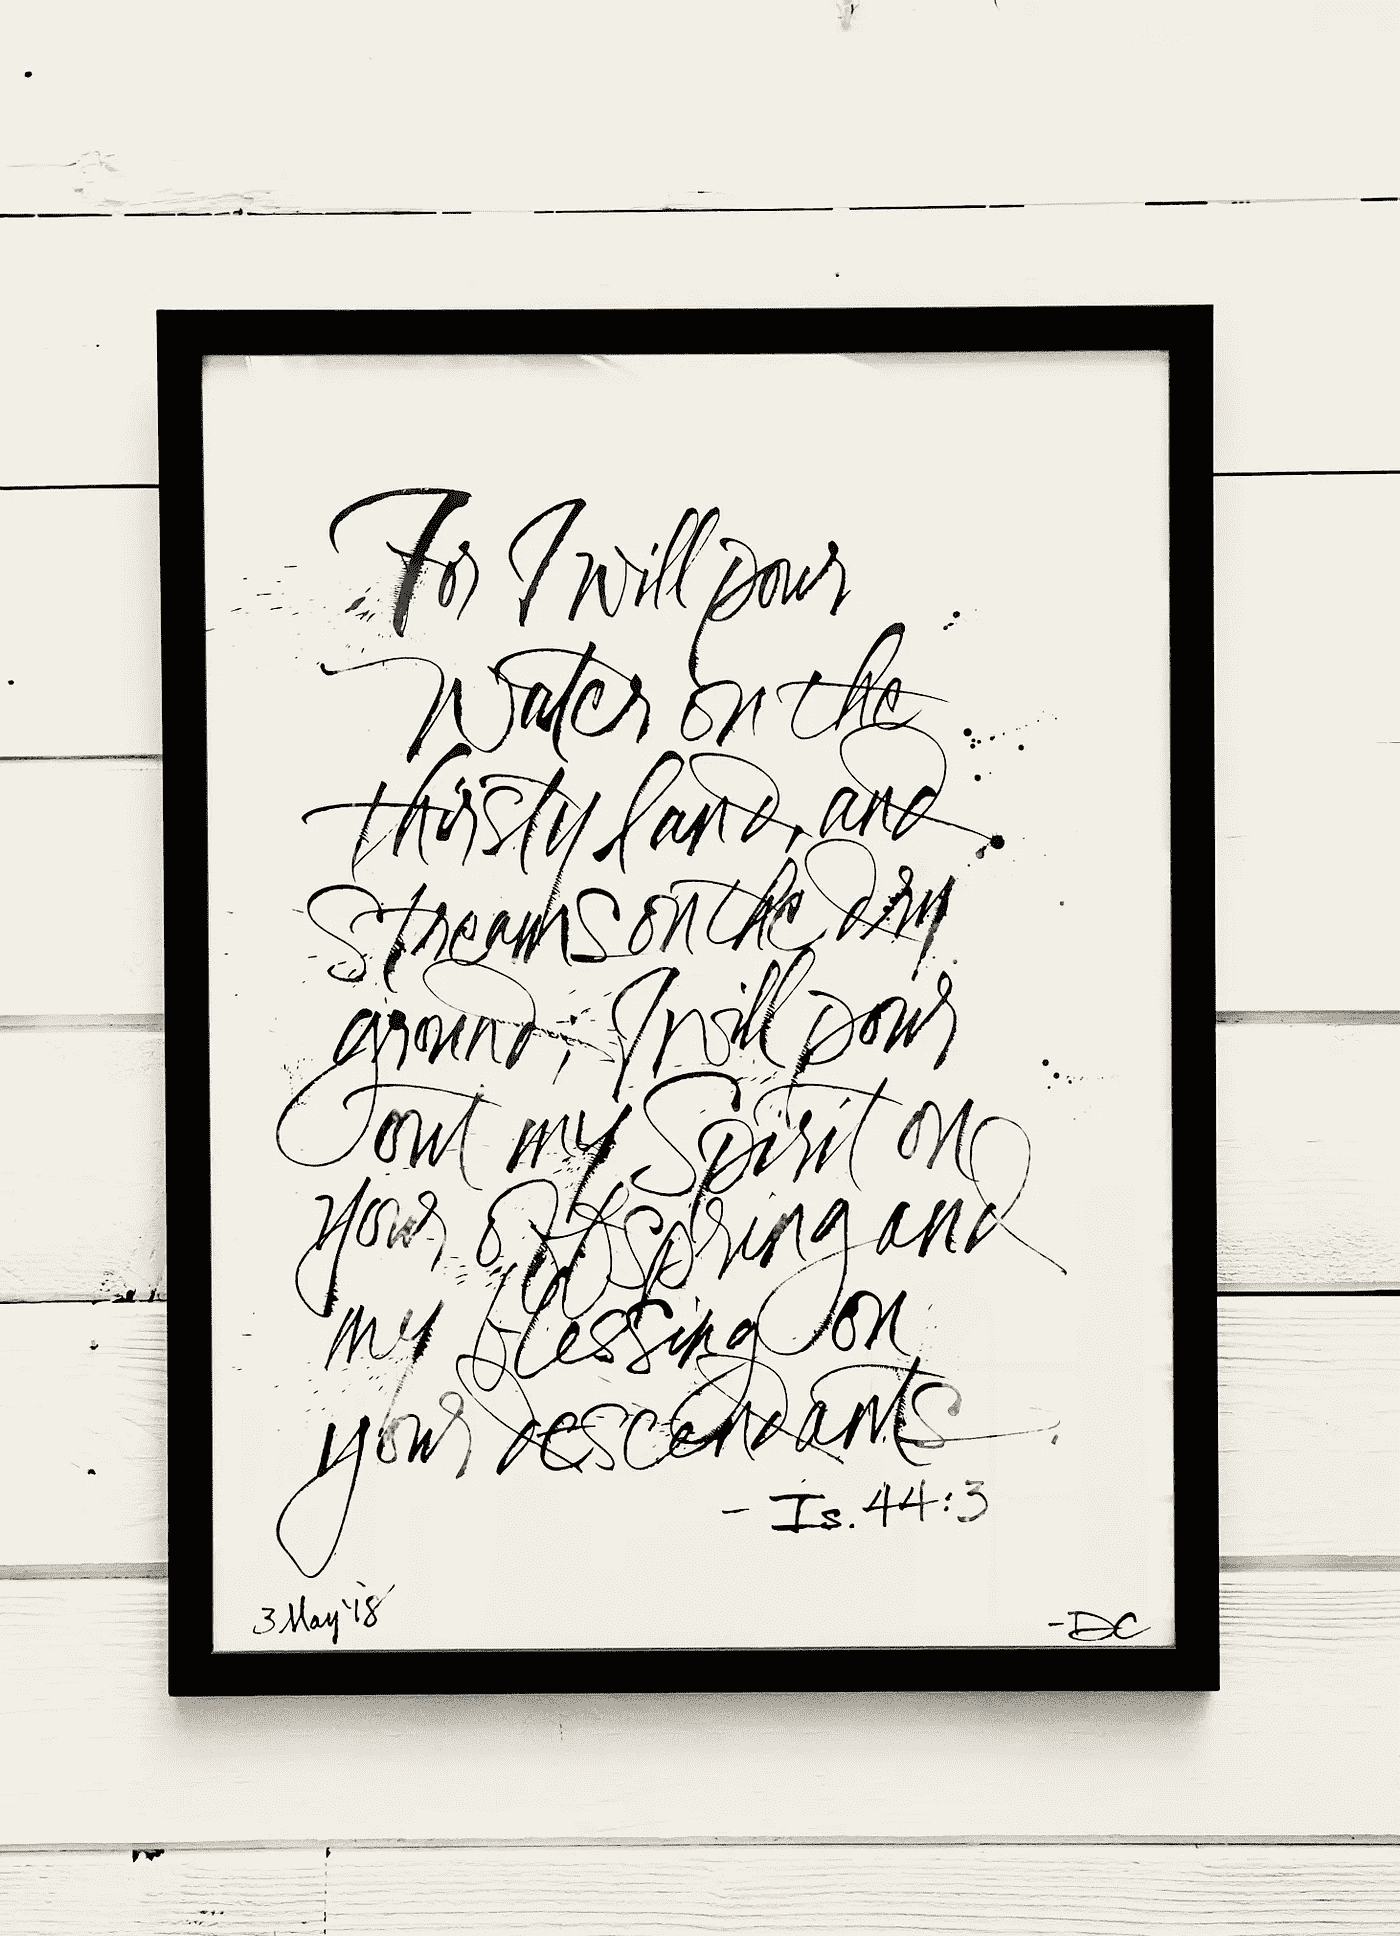 For I will pour
Water on the
thirsty land, and
Streams on the dry
ground; I will pour
out my Spirit on
your offspring and
my blessing on
your descendants
- Is. 44:3
3 May '18
- DC